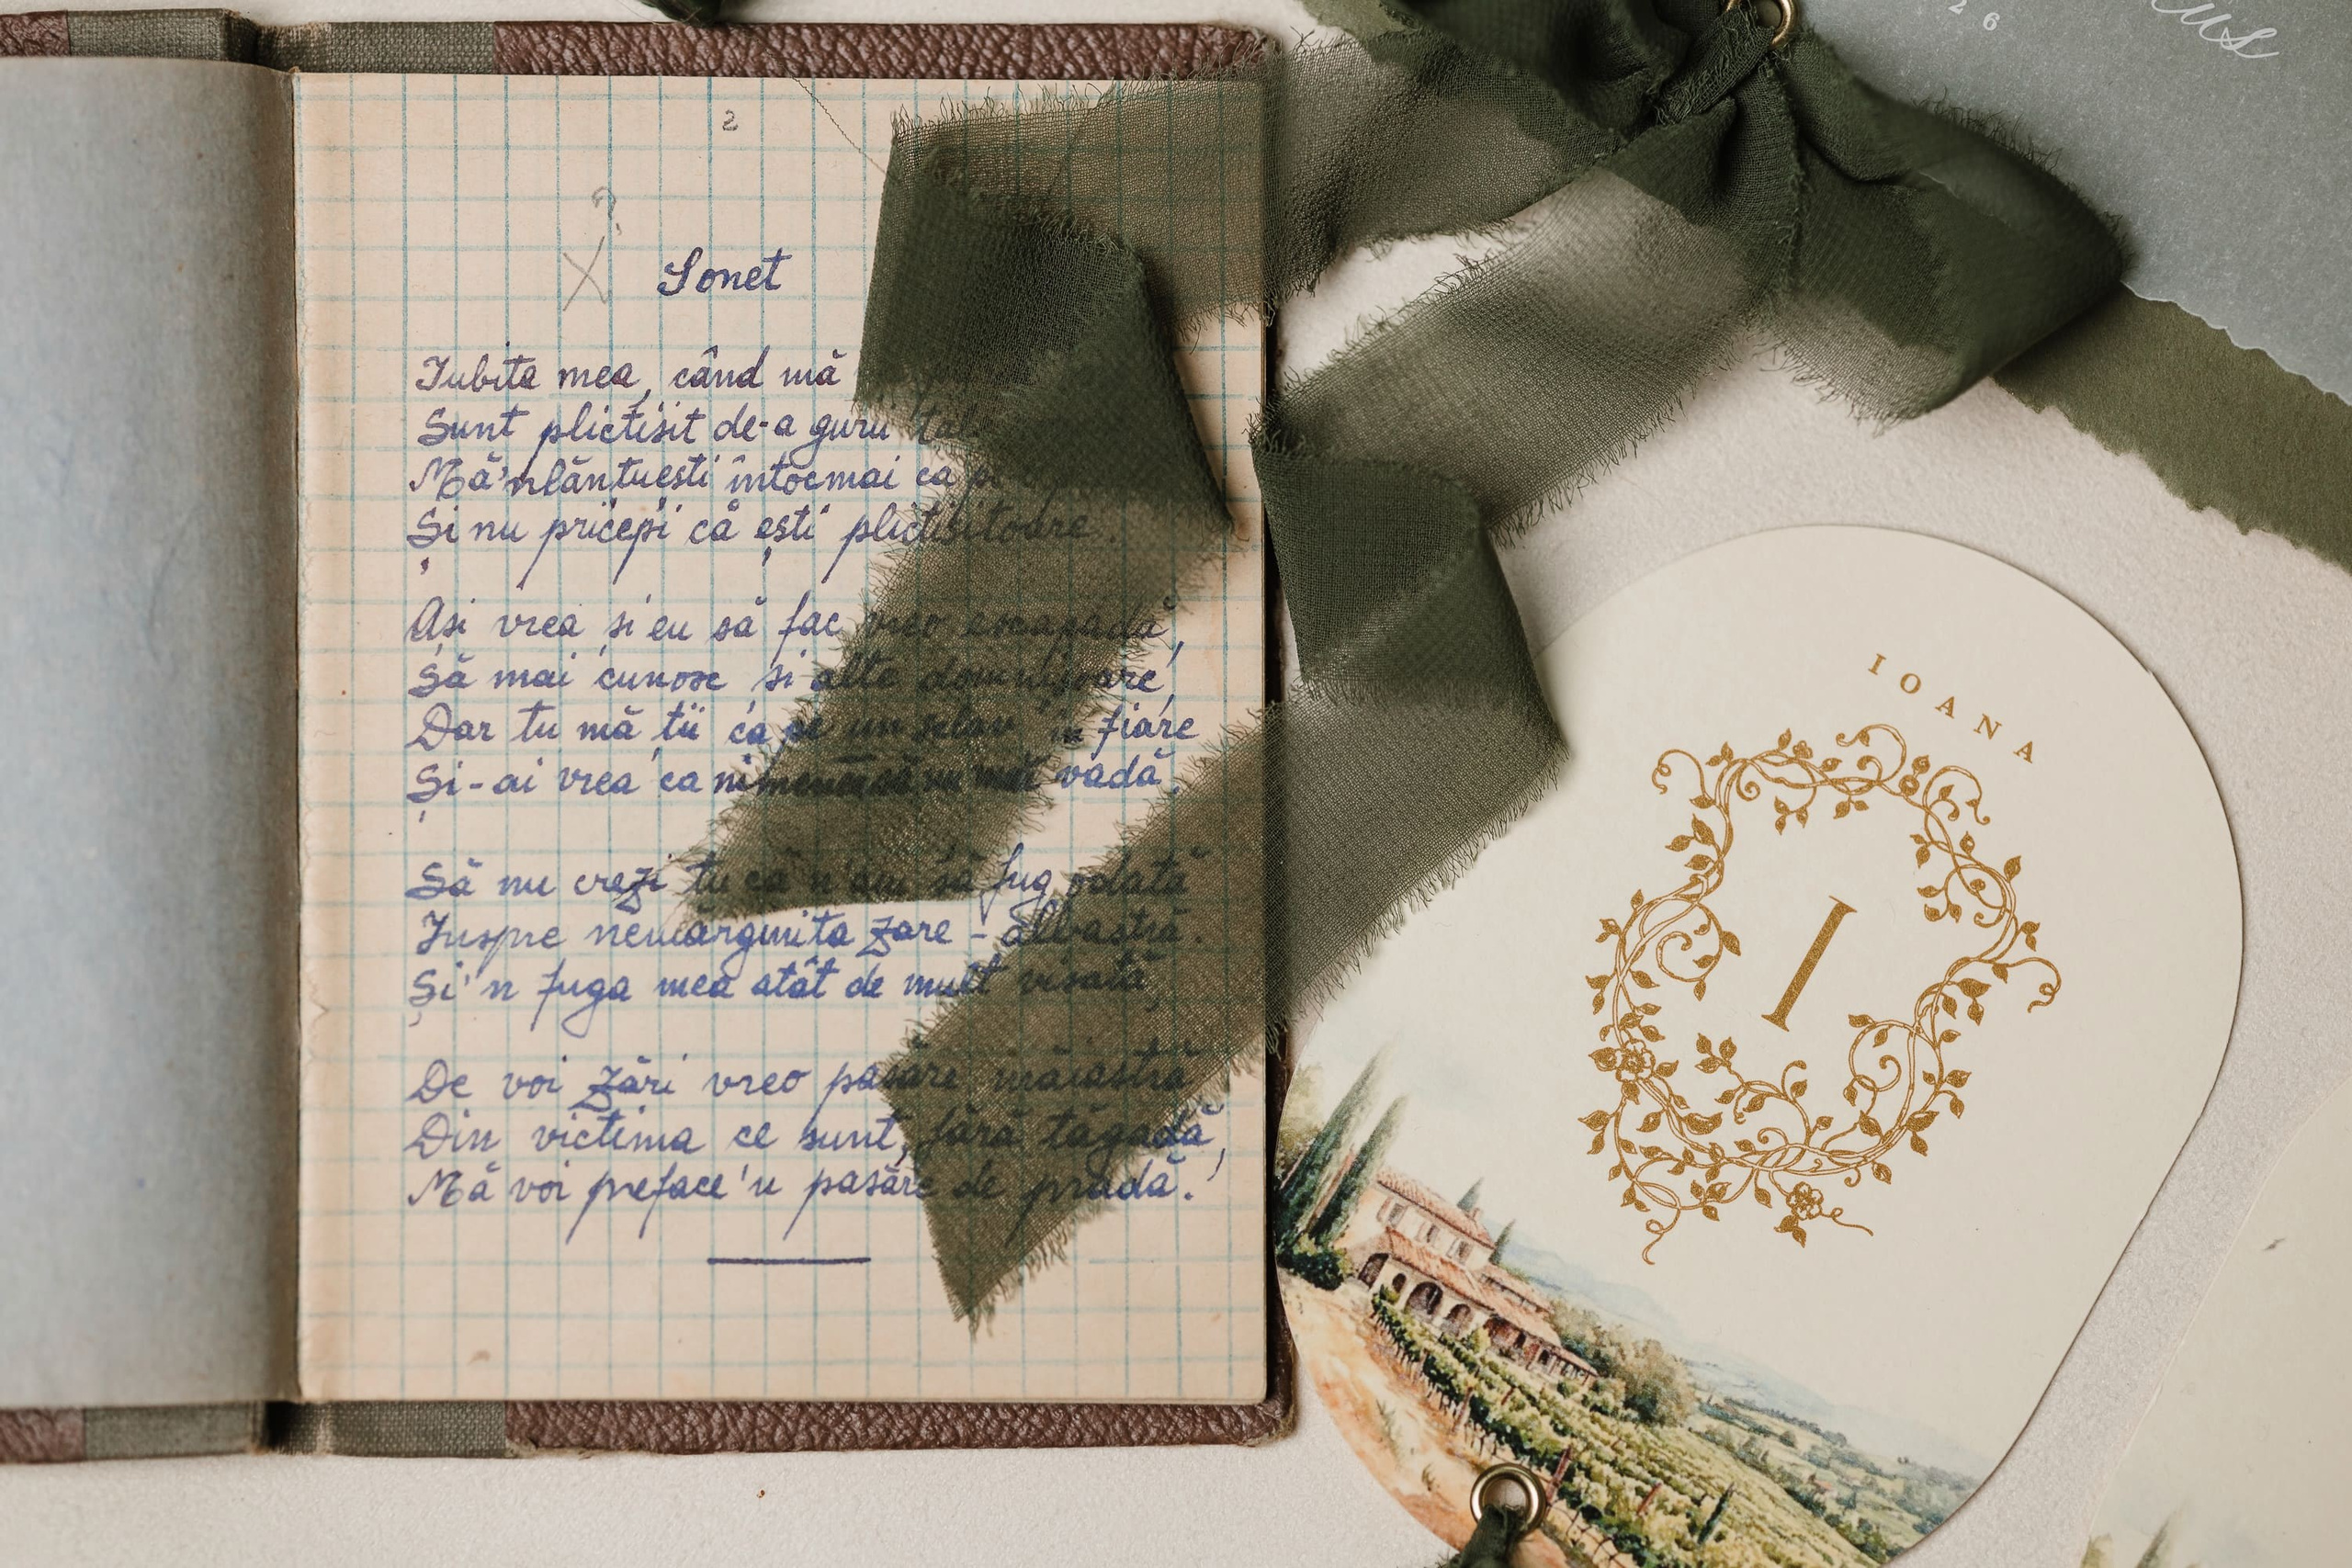 2
?
X
Sonet
Iubita mea, când mă
Sunt plictisit de-a gurii
Mă'nlănțuești întocmai ca
Și nu pricepi că ești plictisitoare
Ași vrea și eu să fac vreo escapadă,
Să mai cunosc și alte domnișoare,
Dar tu mă ții ca pe un sclav în fiare
Și-ai vrea ca nimenea să nu mă vadă.
Să nu crezi tu că n'am să fug odată
Înspre nemărginita zare - albastră.
Și'n fuga mea atât de mult visată,
De voi zări vreo pasăre măiastră
Din victima ce sunt, fără tăgadă,
Mă voi preface'n pasăre de pradă.!
26
IOANA
I